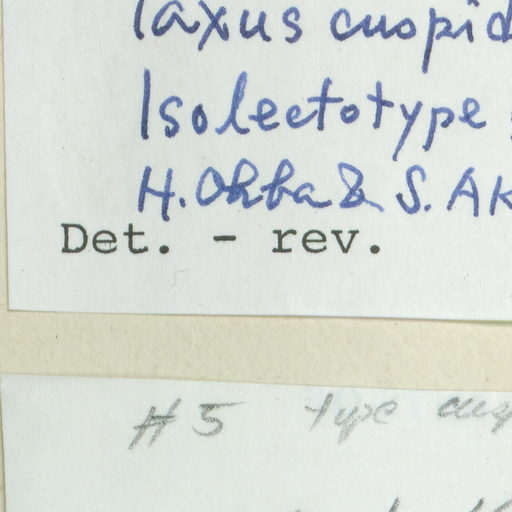 Taxus cuspid
Isolectotype
H. Ohba & S. AK
Det. - rev.
#5 type